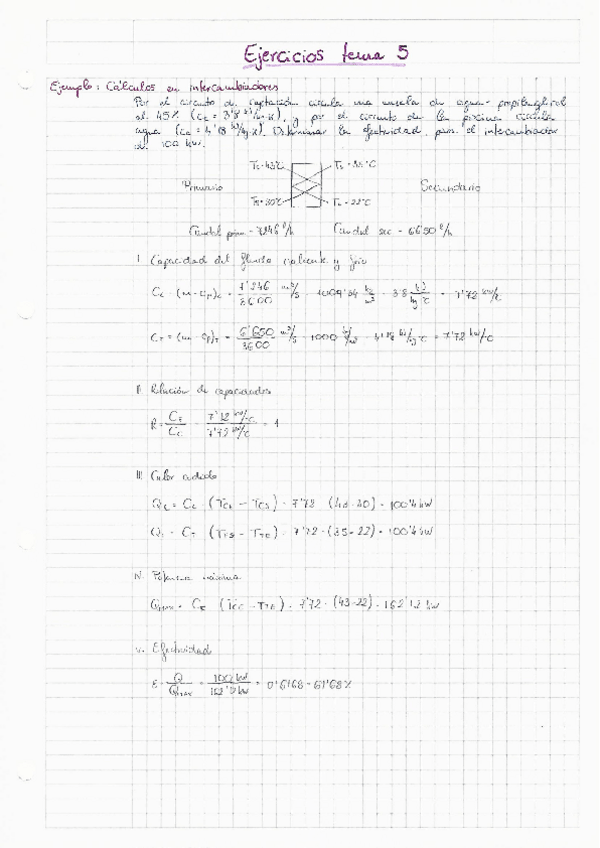 Ejercicios tema 5
Ejemplo: Cálculos en intercambiadores
Por el circuito de captación circula una mezcla de agua-propilenglicol
al 45% (Cc = 3'8 kJ/kg·K), y por el circuito de la piscina circula
agua (Ca = 4'18 kJ/kg·K). Determinar la efectividad para el intercambiador
de 100 kW.
Tc=43°C Ts=35°C
Primario Secundario
Ts=30°C Te=22°C
Caudal prim = 7246 l/h Caudal sec = 6650 l/h
I. Capacidad del fluido caliente y frío
Cc = (m·cp)c = 7'246/3600 m³/s · kg/m³ · 3'8 kJ/kg°C = 7'72 kW/°C
CF = (m·cp)F = 6'650/3600 m³/s · 1000 kg/m³ · 4'18 kJ/kg°C = 7'72 kW/°C
II. Relación de capacidades
R = CF/Cc = 7'72 kW/°C / 7'72 kW/°C = 1
III. Calor cedido
Qc = Cc · (Tce - Tcs) = 7'72 · (43-30) = 100'4 kW
QF = CF · (TFs - TFe) = 7'72 · (35-22) = 100'4 kW
IV. Potencia máxima
Qmax = Cc · (Tce - TFe) = 7'72 · (43-22) = 162'12 kW
V. Efectividad
E = Q/Qmax = = 0'6168 = 61'68%